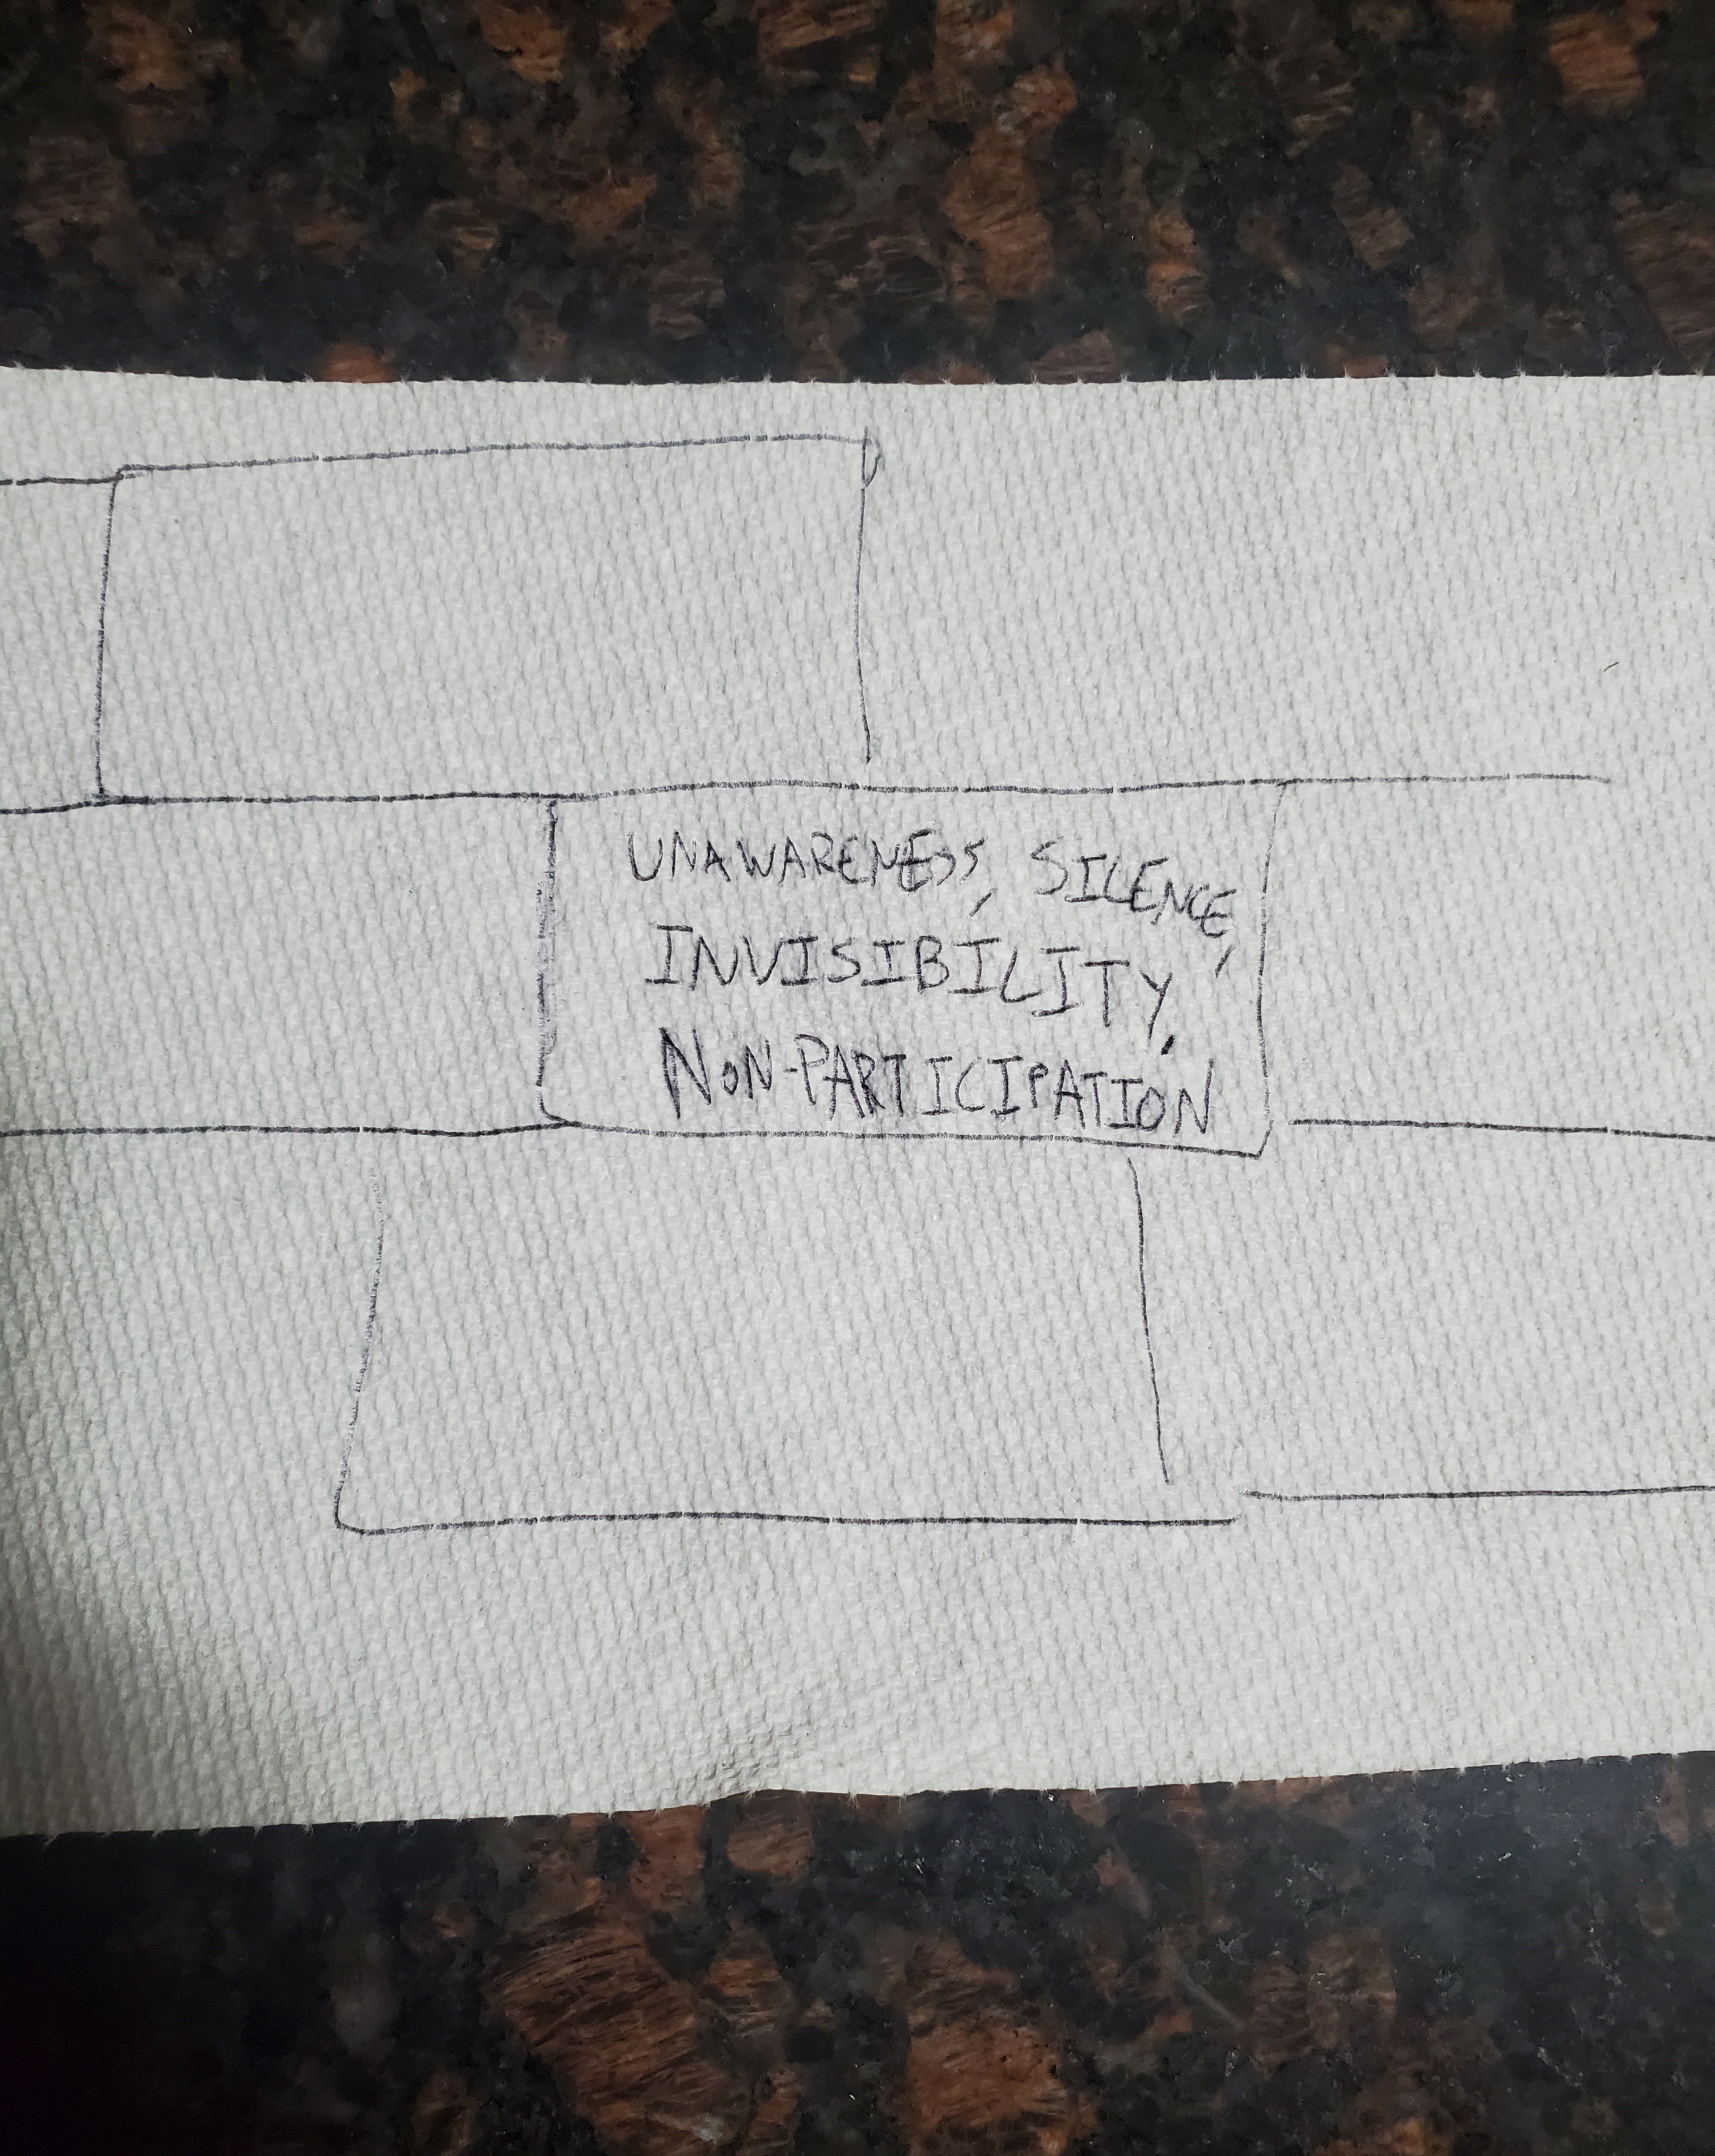 UNAWARENESS, SILENCE,
INVISIBILITY,
NON-PARTICIPATION